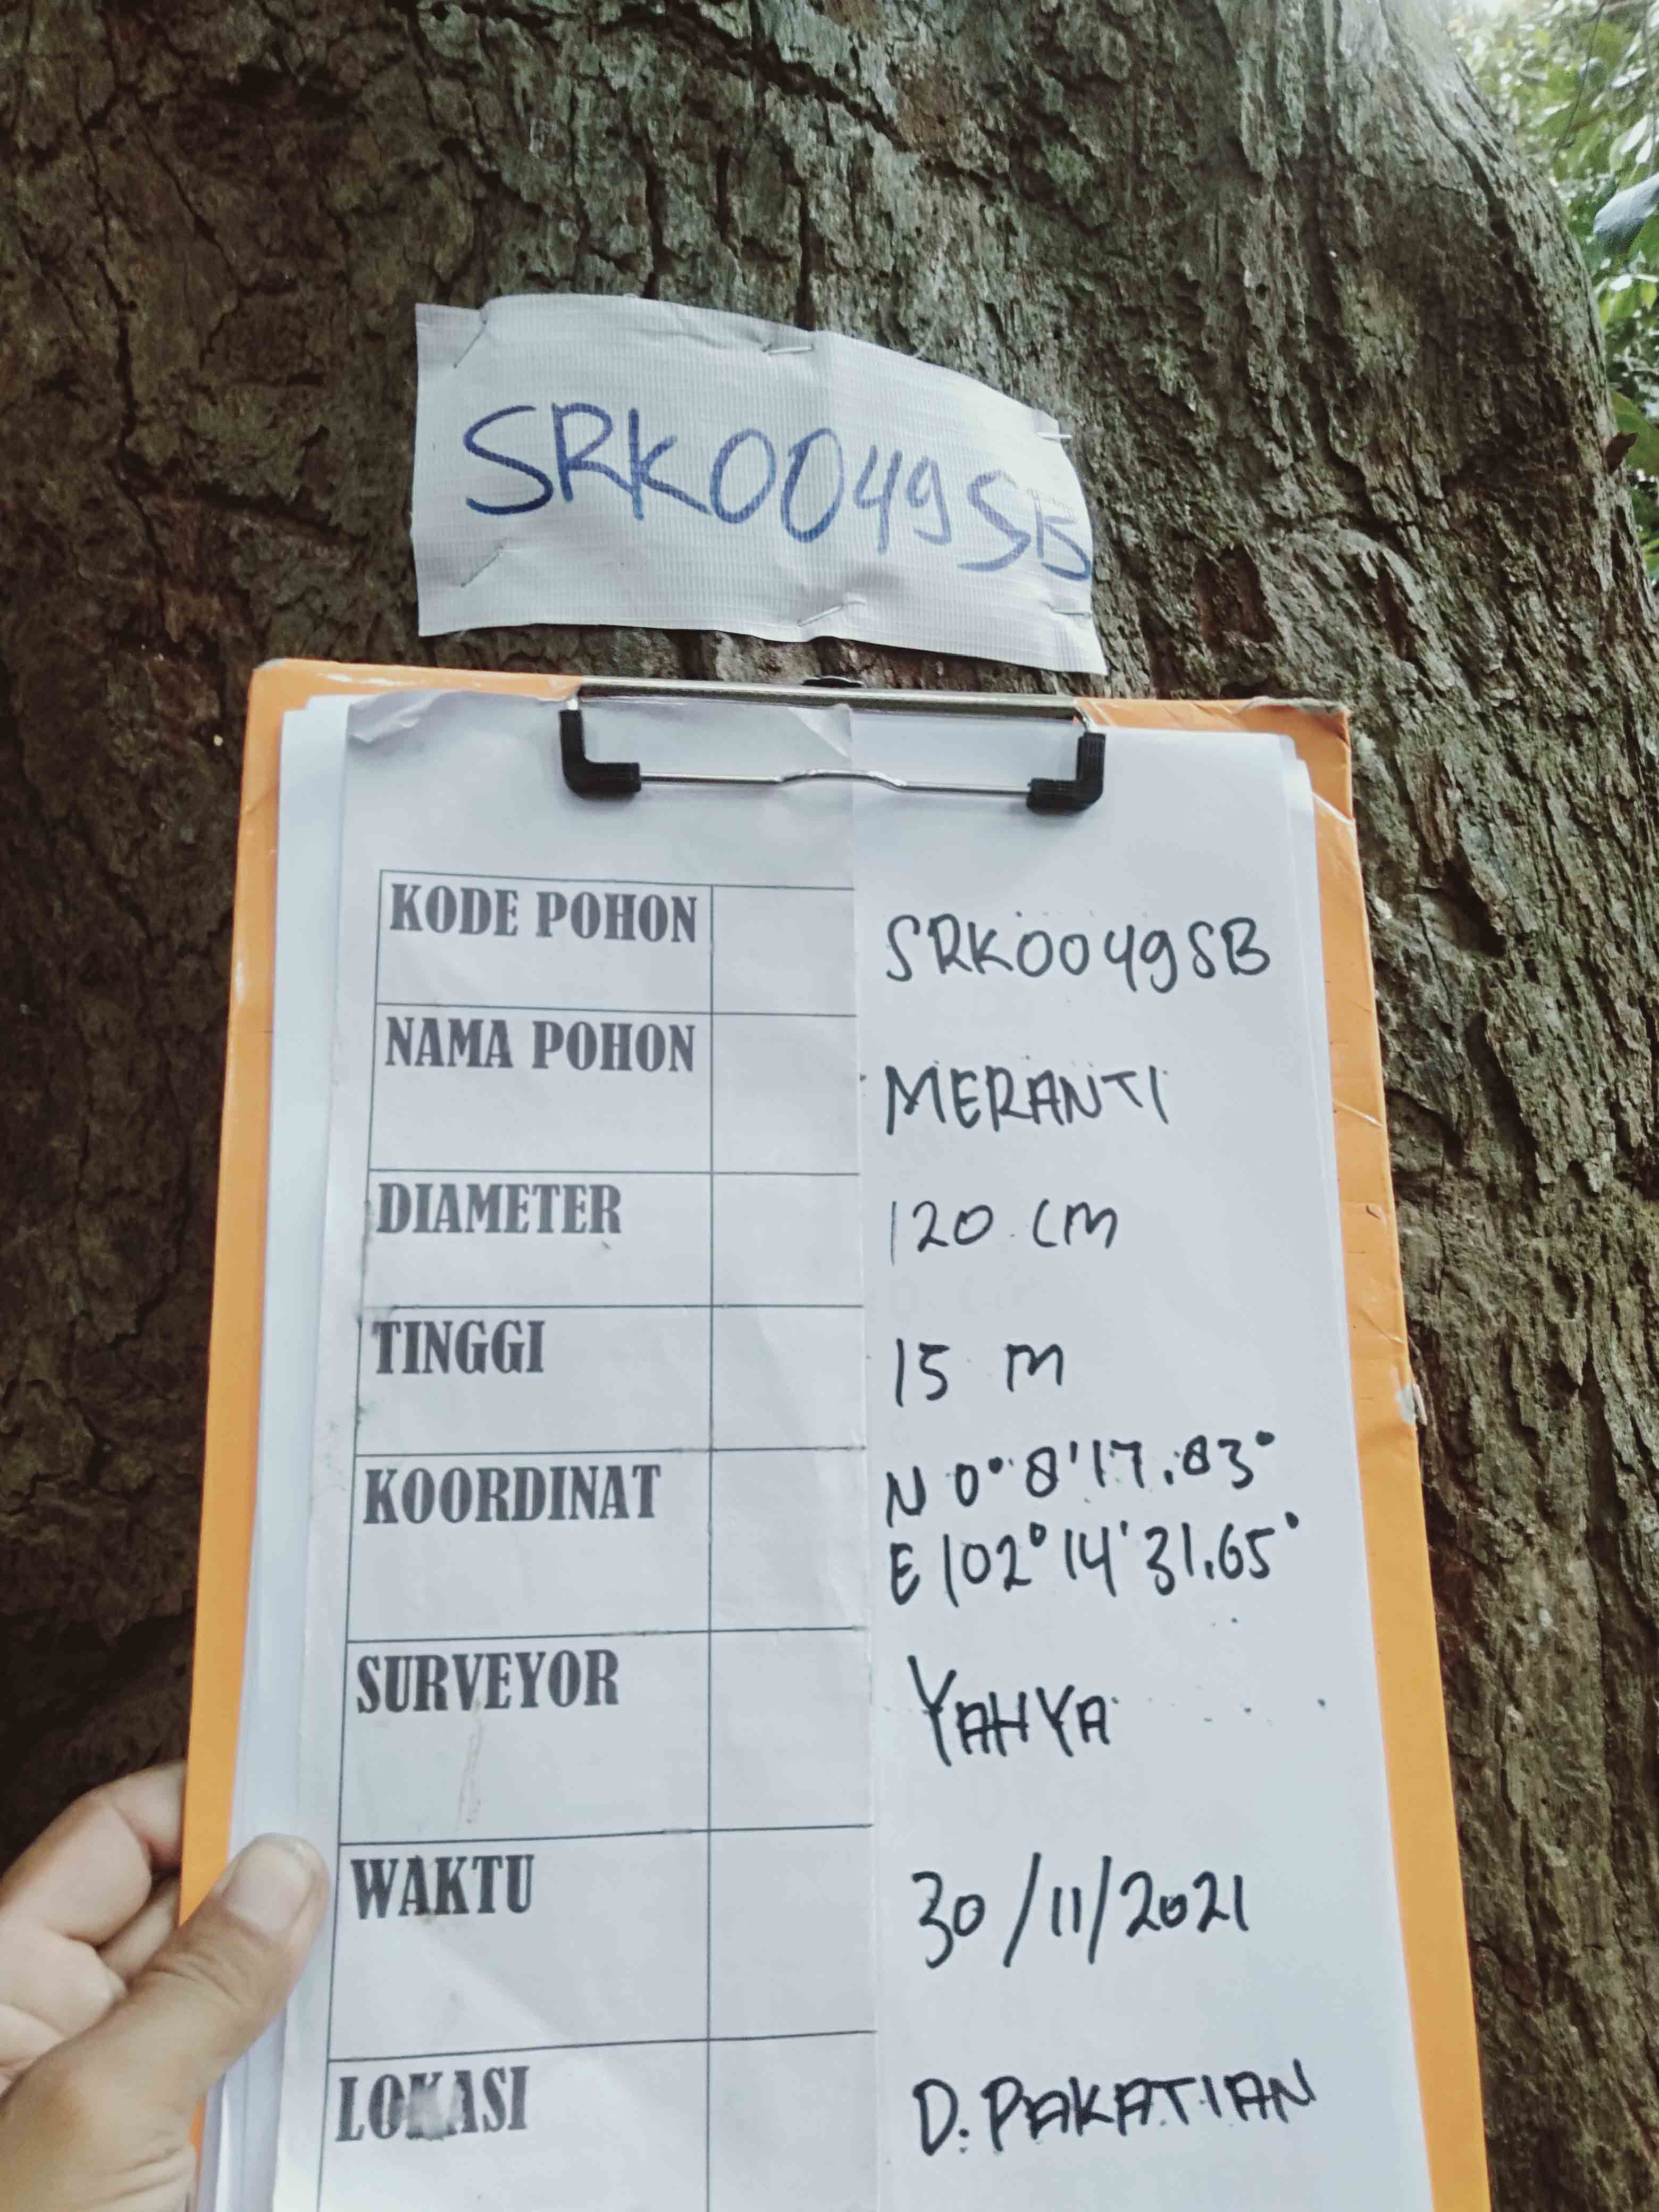 SRK0049SB
KODE POHON SRK0049SB
NAMA POHON MERANTI
DIAMETER 120 CM
TINGGI 15 M
KOORDINAT N 0° 8'17.83°
E 102° 14' 31.65°
SURVEYOR YAHYA
WAKTU 30/11/2021
LOKASI D. PAKATIAN